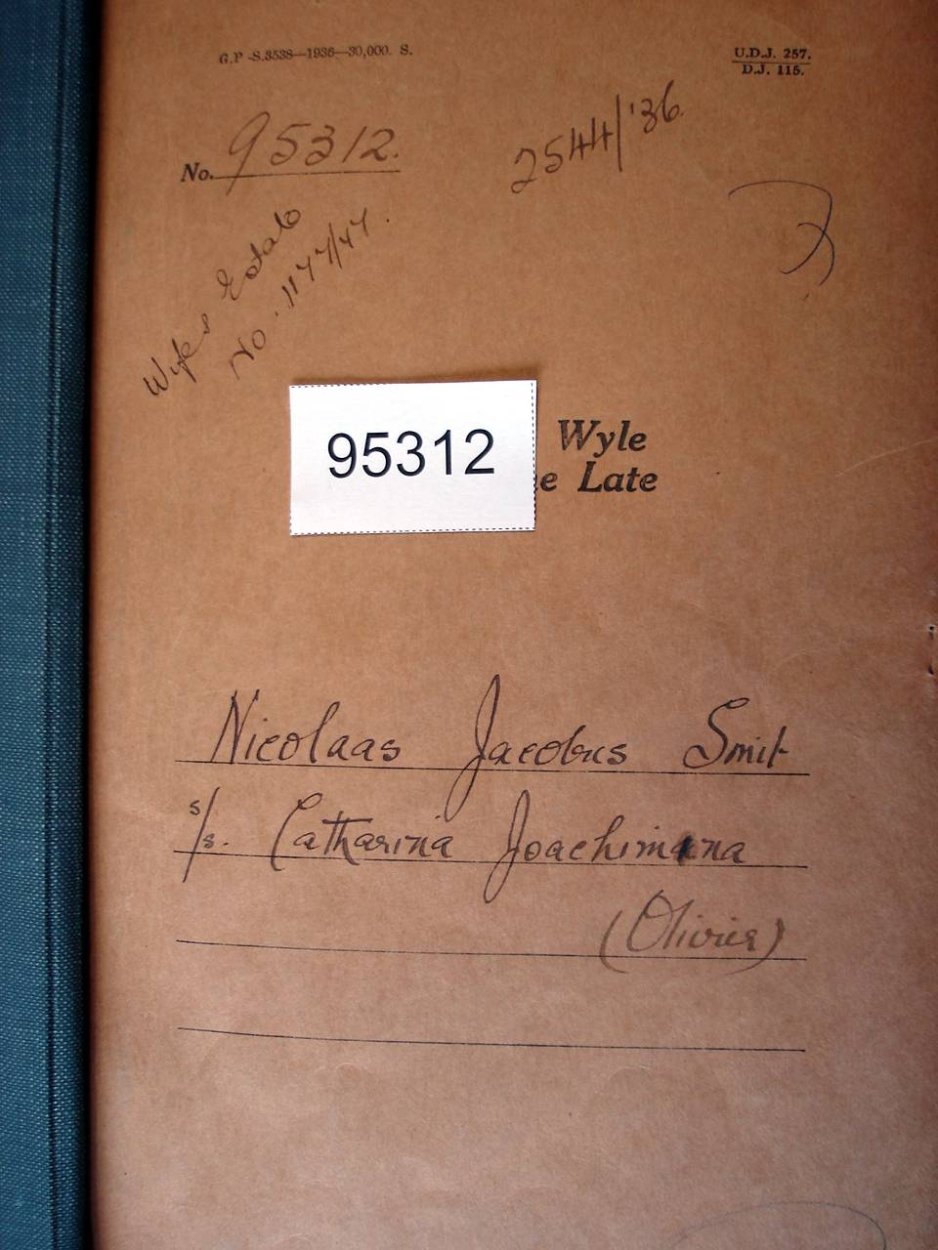 G.P.-S.3538—1936—30,000. S.
U.D.J. 257.
D.J. 115.
No. 95312.
2544/'36.
Wife's Estate
No. 1177/47.
95312
Wyle
e Late
Nicolaas Jacobus Smit
s/s. Catharina Joachimina
(Olivier)